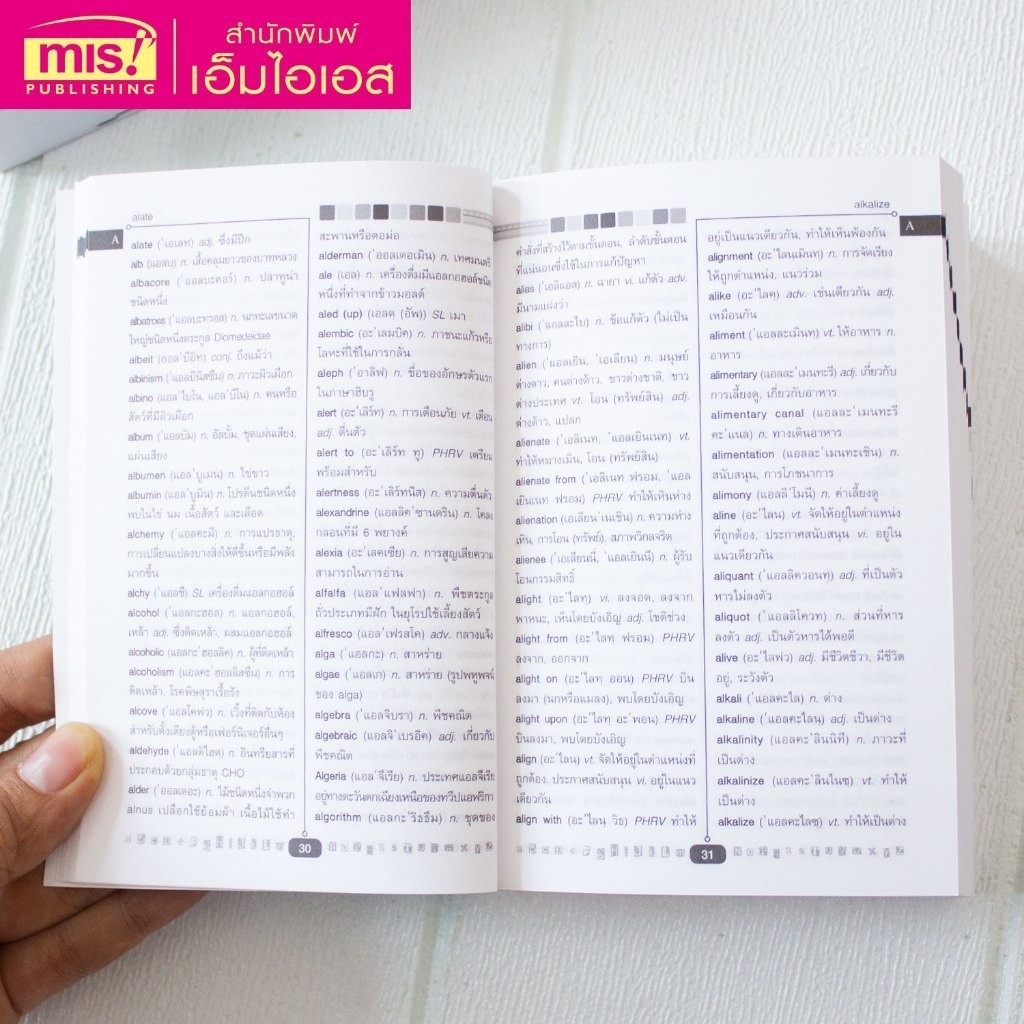 mis!
PUBLISHING
สำนักพิมพ์
เอ็มไอเอส
alate
A
alate ('เอเลท) adj. ซึ่งมีปีก
alb (แอลบ) n. เสื้อคลุมยาวของบาทหลวง
albacore ('แอลบะคอร์) n. ปลาทูน่า
ชนิดหนึ่ง
albatross ('แอลบะทรอส) n. นกทะเลขนาด
ใหญ่ชนิดหนึ่งตระกูล Diomedeidae
albeit (ออล'บีอิท) conj. ถึงแม้ว่า
albinism ('แอลบินิสซึม) n. ภาวะผิวเผือก
albino (แอล'ไบโน, แอล'บีโน) n. คนหรือ
สัตว์ที่มีผิวเผือก
album ('แอลบัม) n. อัลบั้ม, ชุดแผ่นเสียง,
แผ่นเสียง
albumen (แอล'บูเมน) n. ไข่ขาว
albumin (แอล'บูมิน) n. โปรตีนชนิดหนึ่ง
พบในไข่ นม เนื้อสัตว์ และเลือด
alchemy ('แอลคะมี) n. การแปรธาตุ,
การเปลี่ยนแปลงบางสิ่งให้ดีขึ้นหรือมีพลัง
มากขึ้น
alchy ('แอลชี) SL เครื่องดื่มแอลกอฮอล์
alcohol ('แอลกะฮอล) n. แอลกอฮอล์,
เหล้า adj. ซึ่งติดเหล้า, ผสมแอลกอฮอล์
alcoholic (แอลกะ'ฮอลลิค) n. ผู้ที่ติดเหล้า
alcoholism ('แอลคะฮอลลิสซึม) n. การ
ติดเหล้า, โรคพิษสุราเรื้อรัง
alcove ('แอลโคฟว) n. เวิ้งที่ติดกับห้อง
สำหรับตั้งเตียงตู้หรือเฟอร์นิเจอร์อื่นๆ
aldehyde ('แอลดีไฮด) n. อินทรียสารที่
ประกอบด้วยกลุ่มธาตุ CHO
alder ('ออลเดอะ) n. ไม้ชนิดหนึ่งจำพวก
alnus เปลือกใช้ย้อมผ้า เนื้อไม้ใช้ทำ
สะพานหรือตอม่อ
alderman ('ออลเดอเมิน) n. เทศมนตรี
ale (เอล) n. เครื่องดื่มมีแอลกอฮอล์ชนิด
หนึ่งที่ทำจากข้าวมอลต์
aled (up) (เอลดฺ (อัพ)) SL เมา
alembic (อะ'เลมบิค) n. ภาชนะแก้วหรือ
โลหะที่ใช้ในการกลั่น
aleph ('อาลิฟ) n. ชื่อของอักษรตัวแรก
ในภาษาฮิบรู
alert (อะ'เลิร์ท) n. การเตือนภัย vt. เตือน
adj. ตื่นตัว
alert to (อะ'เลิร์ท ทู) PHRV เตรียม
พร้อมสำหรับ
alertness (อะ'เลิร์ทนิส) n. ความตื่นตัว
alexandrine (แอลลิค'ซานดริน) n. โคลง
กลอนที่มี 6 พยางค์
alexia (อะ'เลคเซีย) n. การสูญเสียความ
สามารถในการอ่าน
alfalfa (แอล'แฟลฟา) n. พืชตระกูล
ถั่วประเภทมีฝัก ในยุโรปใช้เลี้ยงสัตว์
alfresco (แอล'เฟรสโค) adv. กลางแจ้ง
alga ('แอลกะ) n. สาหร่าย
algae ('แอลเก) n. สาหร่าย (รูปพหูพจน์
ของ alga)
algebra ('แอลจิบรา) n. พีชคณิต
algebraic (แอลจิ'เบรอิค) adj. เกี่ยวกับ
พีชคณิต
Algeria (แอล'จีเรีย) n. ประเทศแอลจีเรีย
อยู่ทางตะวันตกเฉียงเหนือของทวีปแอฟริกา
algorithm (แอลกะ'ริธธึม) n. ชุดของ
30
alkalize
A
คำสั่งที่สร้างไว้ตามขั้นตอน, ลำดับขั้นตอน
ที่แน่นอนซึ่งใช้ในการแก้ปัญหา
alias ('เอลิแอส) n. ฉายา vi. แก้ตัว adv.
มีนามแฝงว่า
alibi ('แอลละไบ) n. ข้อแก้ตัว (ไม่เป็น
ทางการ)
alien ('แอลเอิน, 'เอเลียน) n. มนุษย์
ต่างดาว, คนต่างด้าว, ชาวต่างชาติ, ชาว
ต่างประเทศ vt. โอน (ทรัพย์สิน) adj.
ต่างด้าว, แปลก
alienate ('เอลิเนท, 'แอลเยินเนท) vt.
ทำให้หมางเมิน, โอน (ทรัพย์สิน)
alienate from ('เอลิเนท ฟรอม, 'แอล
เยินเนท ฟรอม) PHRV ทำให้เหินห่าง
alienation (เอเลียน'เนเชิน) n. ความห่าง
เหิน, การโอน (ทรัพย์), สภาพวิกลจริต
alienee (เอเลียนนี, 'แอลเยินนี) n. ผู้รับ
โอนกรรมสิทธิ์
alight (อะ'ไลท) vi. ลงจอด, ลงจาก
พาหนะ, เห็นโดยบังเอิญ adj. โชติช่วง
alight from (อะ'ไลทฺ ฟรอม) PHRV
ลงจาก, ออกจาก
alight on (อะ'ไลทฺ ออน) PHRV บิน
ลงมา (นกหรือแมลง), พบโดยบังเอิญ
alight upon (อะ'ไลทฺ อะ'พอน) PHRV
บินลงมา, พบโดยบังเอิญ
align (อะ'ไลน) vt. จัดให้อยู่ในตำแหน่งที่
ถูกต้อง, ประกาศสนับสนุน vi. อยู่ในแนว
เดียวกัน
align with (อะ'ไลนฺ วิธ) PHRV ทำให้
อยู่เป็นแนวเดียวกัน, ทำให้เห็นพ้องกัน
alignment (อะ'ไลนเมินท) n. การจัดเรียง
ให้ถูกตำแหน่ง, แนวร่วม
alike (อะ'ไลคฺ) adv. เช่นเดียวกัน adj.
เหมือนกัน
aliment ('แอลละเมินท) vt. ให้อาหาร n.
อาหาร
alimentary (แอลละ'เมนทะรี) adj. เกี่ยวกับ
การเลี้ยงดู, เกี่ยวกับอาหาร
alimentary canal (แอลละ'เมนทะรี
คะ'แนล) n. ทางเดินอาหาร
alimentation (แอลละ'เมนทะเชิน) n.
สนับสนุน, การโภชนาการ
alimony ('แอลลิ'โมนี) n. ค่าเลี้ยงดู
aline (อะ'ไลน) vt. จัดให้อยู่ในตำแหน่ง
ที่ถูกต้อง, ประกาศสนับสนุน vi. อยู่ใน
แนวเดียวกัน
aliquant ('แอลลิควอนทฺ) adj. ที่เป็นตัว
หารไม่ลงตัว
aliquot ('แอลลิโควท) n. ส่วนที่หาร
ลงตัว adj. เป็นตัวหารได้พอดี
alive (อะ'ไลฟว) adj. มีชีวิตชีวา, มีชีวิต
อยู่, ระวังตัว
alkali ('แอลคะไล) n. ด่าง
alkaline ('แอลคะไลน) adj. เป็นด่าง
alkalinity ('แอลคะ'ลินนิที) n. ภาวะที่
เป็นด่าง
alkalinize ('แอลคะ'ลินไนซฺ) vt. ทำให้
เป็นด่าง
alkalize ('แอลคะไลซฺ) vt. ทำให้เป็นด่าง
31